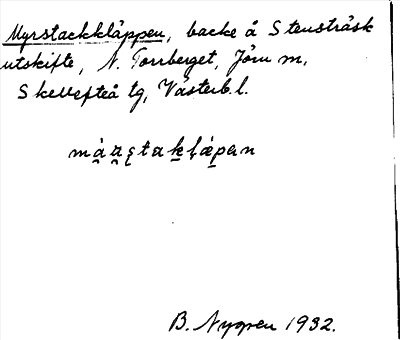 Myrstackkläppen, backe å Stensträsk
utskifte, N. Torrberget, Jörn sn,
Skellefteå tg, Västerb. l.
B. Nygren 1932.